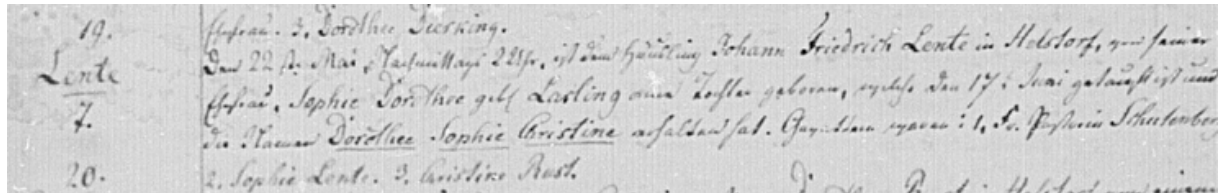 19.
Ehefrau. 3, Dorothee Dierking.
Lente
Den 22 st. Mai, Nachmittags 2 Uhr, ist dem Häusling Johann Friedrich Lente in Helstorf, von seiner
Ehefrau, Sophie Dorothee geb. Lasling eine Tochter geboren, welche den 17. Juni getauft ist und
7.
die Namen Dorothee Sophie Christine erhalten hat. Gevattern waren: 1, Fr. Pastorin Schulenberg
20.
2. Sophie Lente. 3. Christine Rust.
Rust in Helstorf von seiner